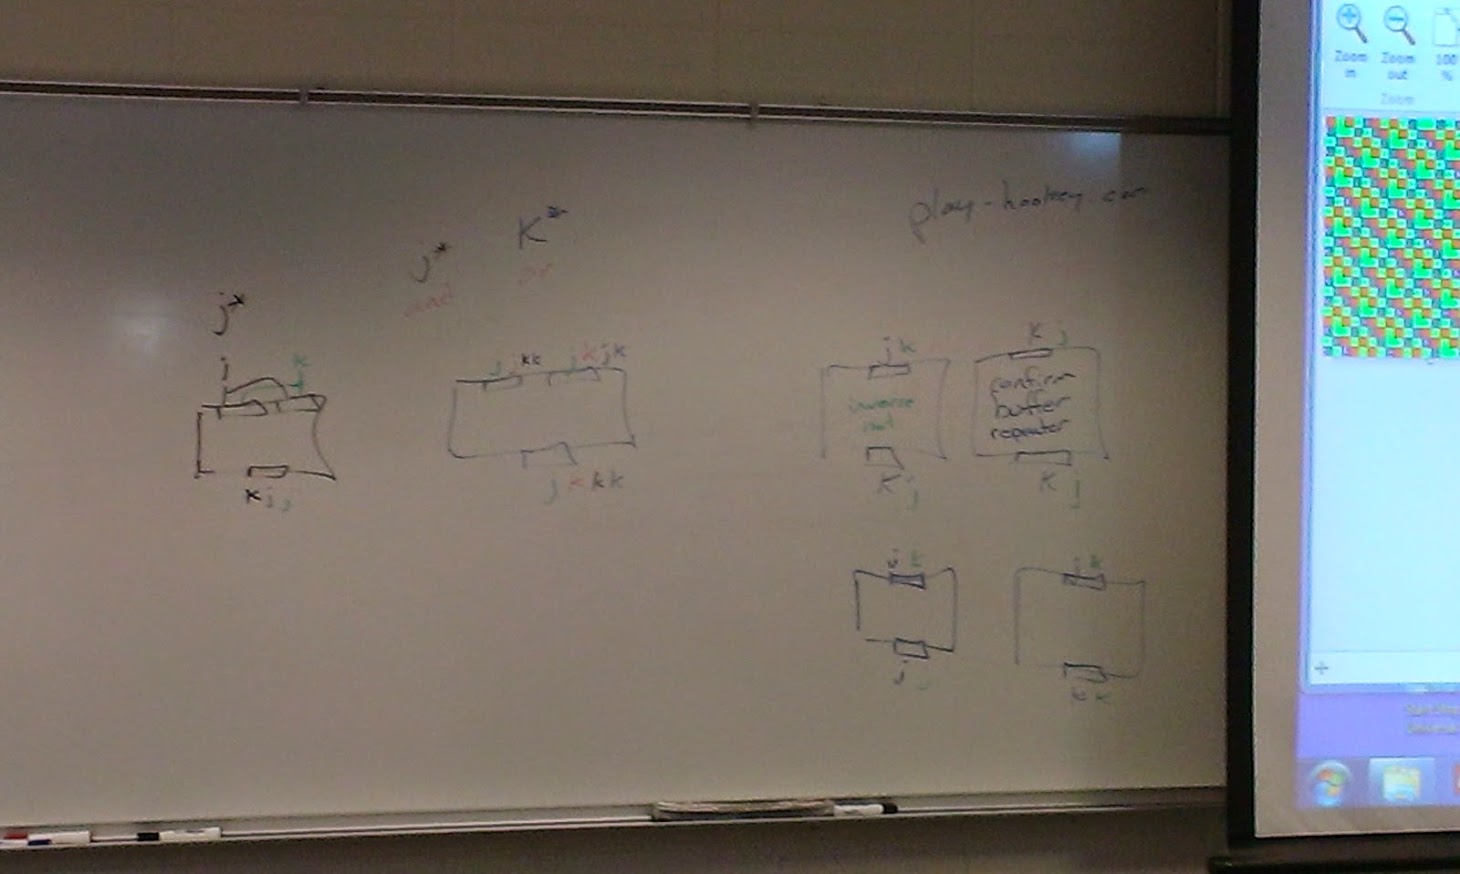 play-hookey.com
K*
j*
and
or
j*
j k
K j j
j j k k j k j k
j k k k
j k
inverse
not
K j
K j
confirm
buffer
repeater
K j
j k
j j
j k
k k
Zoom
in
Zoom
out
100
%
Zoom